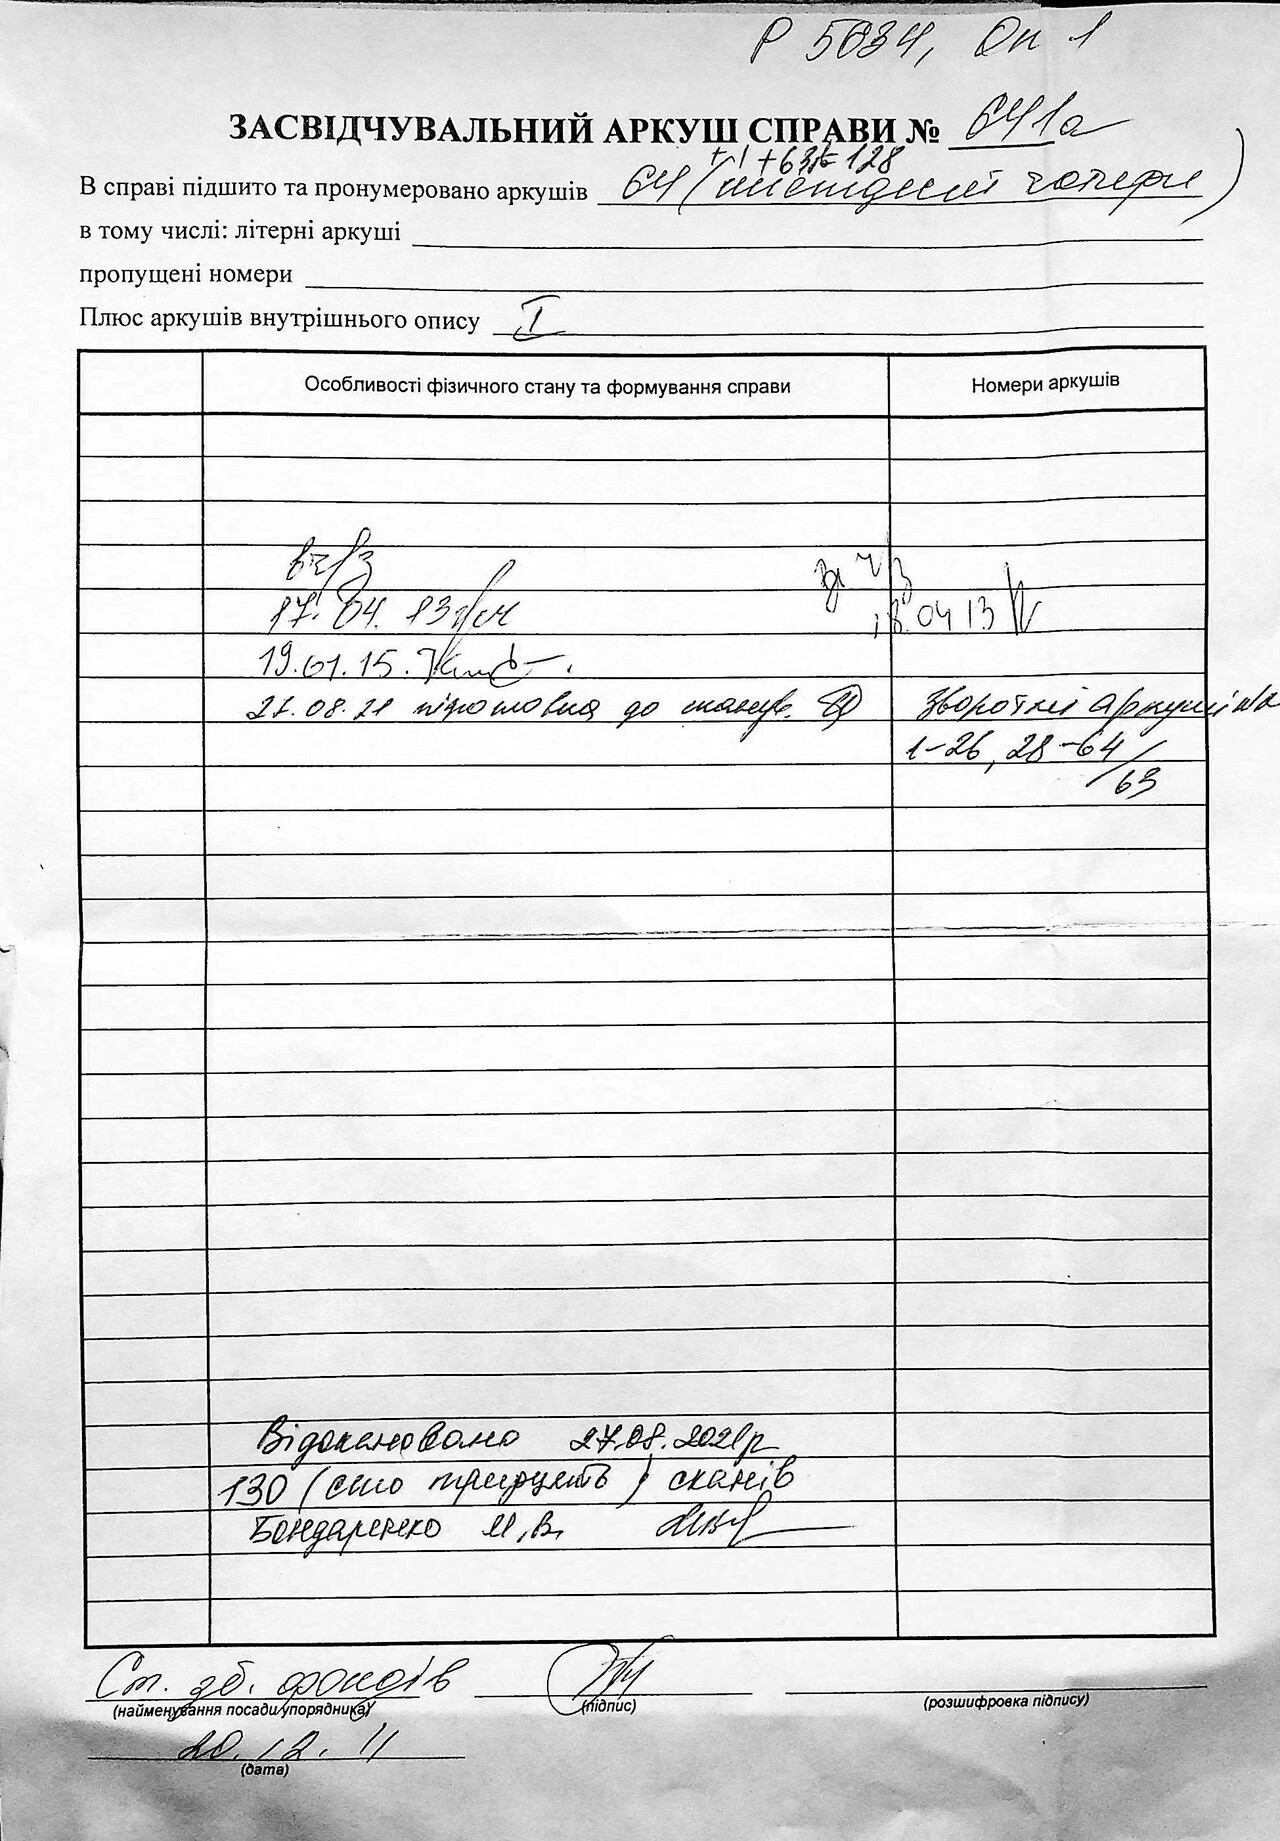 Р 5634, Оп 1
ЗАСВІДЧУВАЛЬНИЙ АРКУШ СПРАВИ № 641а
+1 +63 = 128
В справі підшито та пронумеровано аркушів 64 (шістдесят чотири)
в тому числі: літерні аркуші
пропущені номери
Плюс аркушів внутрішнього опису I
Особливості фізичного стану та формування справи Номери аркушів
17.04.13
18.04 13
19.01.15.
27.08.21 підготовка до сканув. Зворотні аркуші
1-26, 28-64/63
Відскановано 27.08.2021р
130 (сто тридцять) сканів
Бондаренко М.В.
Ст. зб. фондів
(найменування посади упорядника) (підпис) (розшифровка підпису)
20.12.11
(дата)